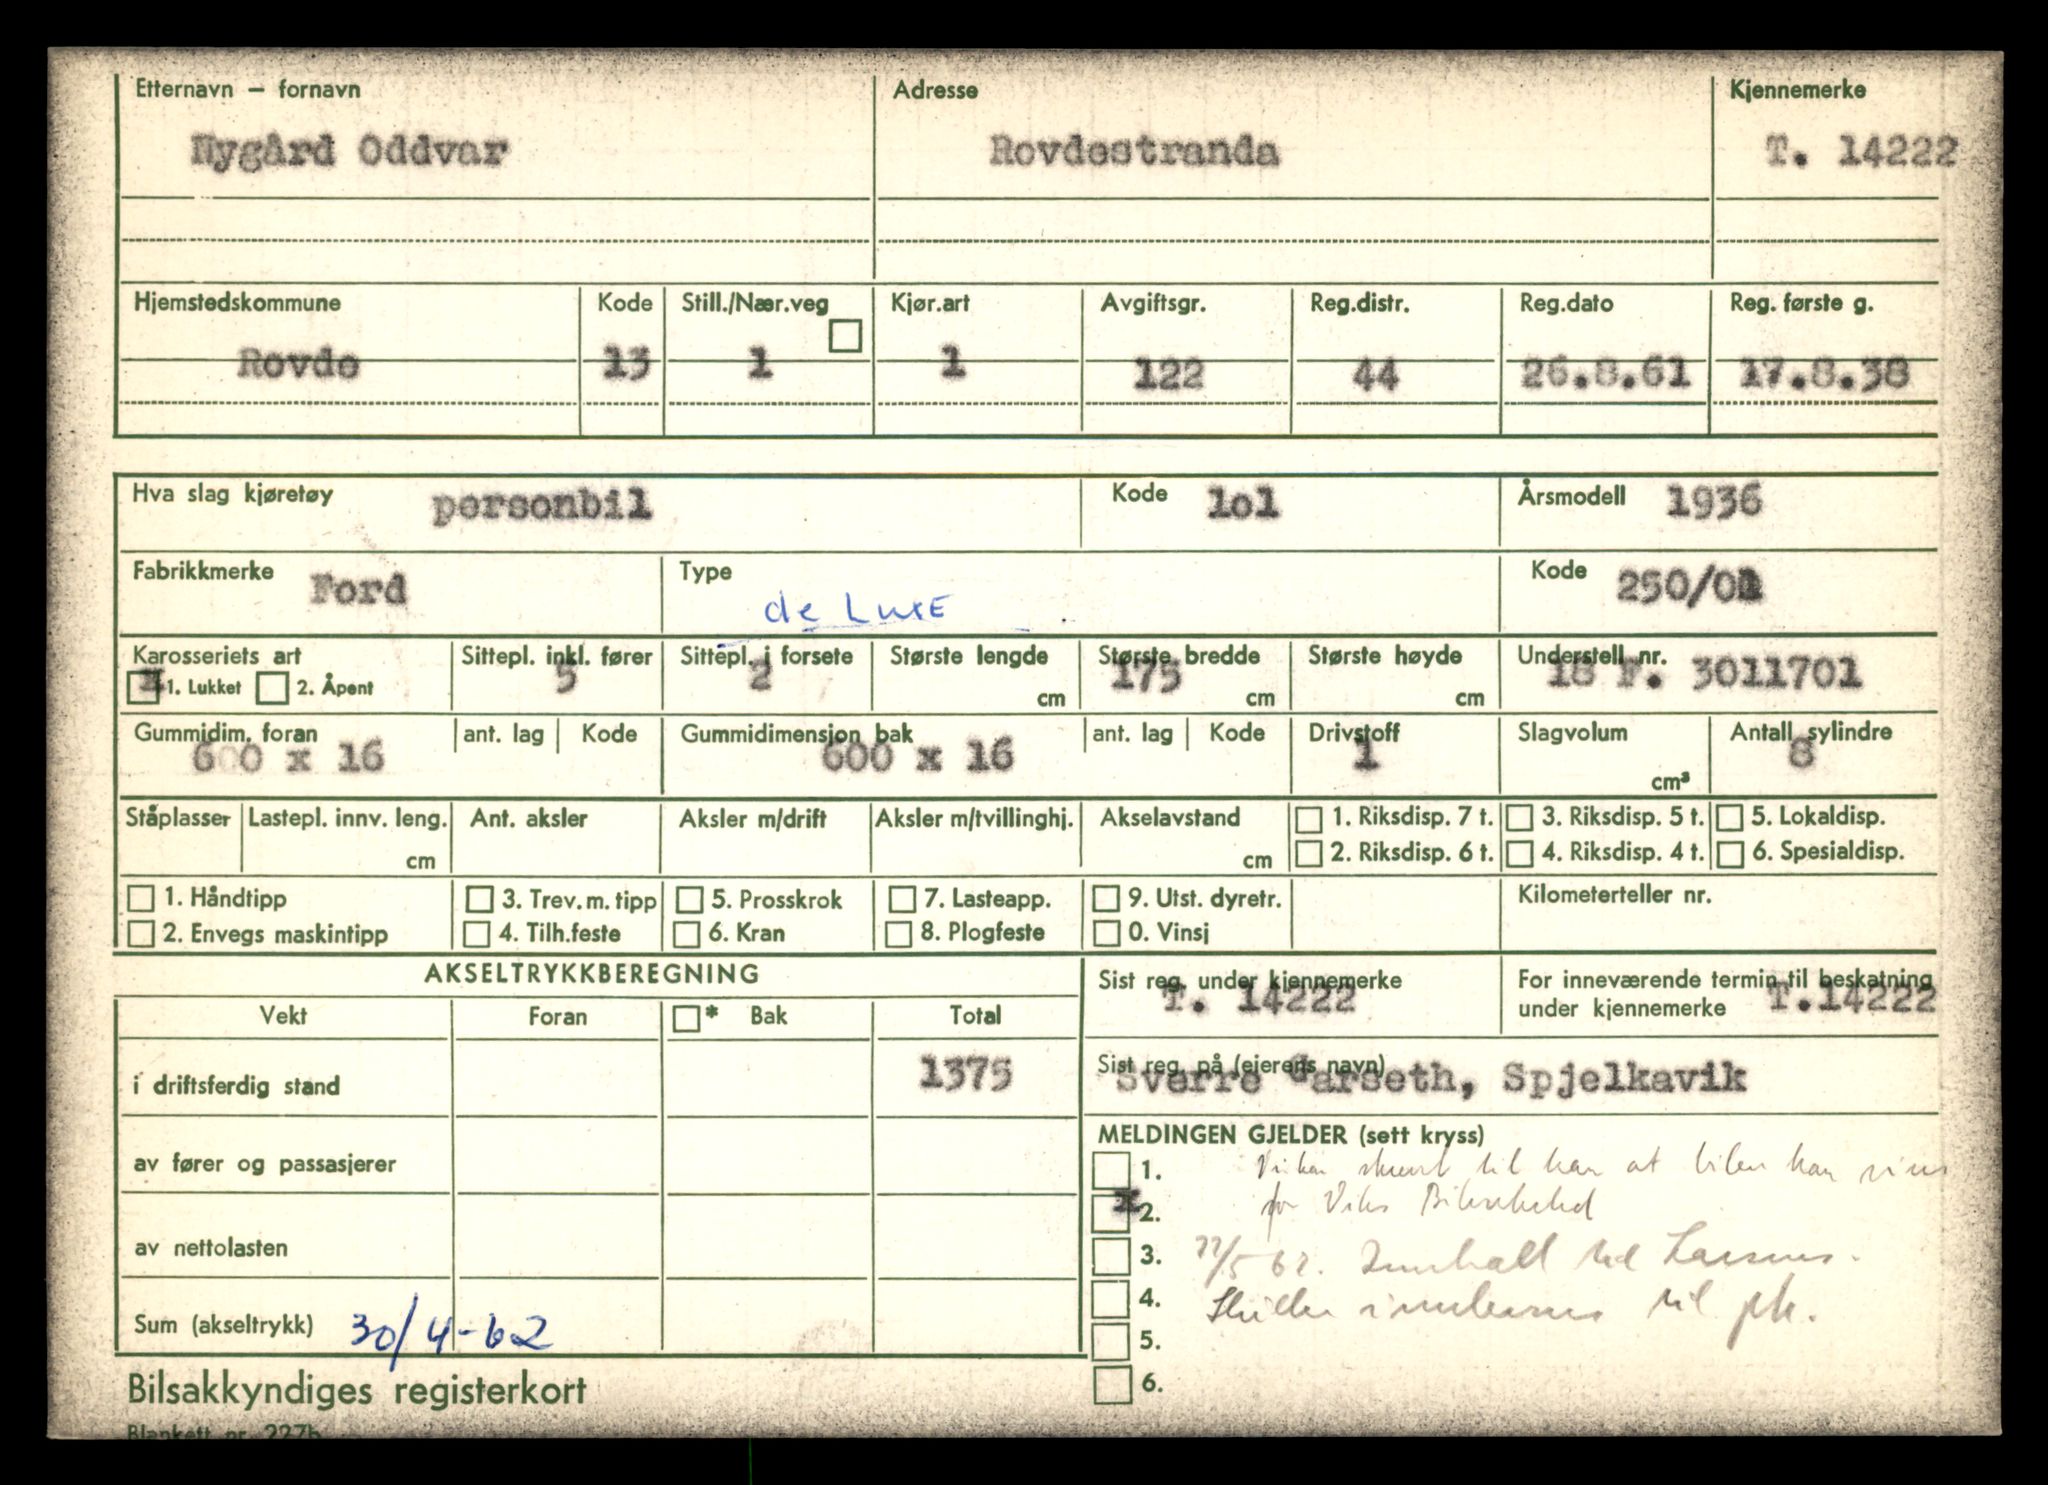 Etternavn — fornavn Adresse Kjennemerke
Nygård Oddvar Rovdestranda T. 14222
Hjemstedskommune Kode Still./Nær.veg Kjør.art Avgiftsgr. Reg.distr. Reg.dato Reg. første g.
Rovde 13 1 1 122 44 26.8.61 17.8.38
Hva slag kjøretøy personbil Kode lol Årsmodell 1936
Fabrikkmerke Ford Type de LuxE Kode 250/01
Karosseriets art Sittepl. inkl. fører Sittepl. i forsete Største lengde Største bredde Største høyde Understell nr.
X 1. Lukket 2. Åpent 5 2 cm 175 cm cm 18 F. 3011701
Gummidim. foran ant. lag Kode Gummidimensjon bak ant. lag Kode Drivstoff Slagvolum Antall sylindre
600 x 16 600 x 16 1 cm³ 8
Ståplasser Lastepl. innv. leng. Ant. aksler Aksler m/drift Aksler m/tvillinghj. Akselavstand 1. Riksdisp. 7 t. 3. Riksdisp. 5 t. 5. Lokaldisp.
cm cm 2. Riksdisp. 6 t. 4. Riksdisp. 4 t. 6. Spesialdisp.
1. Håndtipp 3. Trev. m. tipp 5. Prosskrok 7. Lasteapp. 9. Utst. dyretr. Kilometerteller nr.
2. Envegs maskintipp 4. Tilh.feste 6. Kran 8. Plogfeste 0. Vinsj
AKSELTRYKKBEREGNING
Sist reg. under kjennemerke For inneværende termin til beskatning
T. 14222 under kjennemerke T.14222
Vekt Foran * Bak Total
i driftsferdig stand 1375
Sist reg. på (eierens navn)
Sverre Garseth, Spjelkavik
av fører og passasjerer
av nettolasten
Sum (akseltrykk) 30/4-62
MELDINGEN GJELDER (sett kryss)
1. til han at bilen kan
X 2. for Viks
3. /5 62. Larsnes.
4. til
5.
6.
Bilsakkyndiges registerkort
Blankett nr. 227b